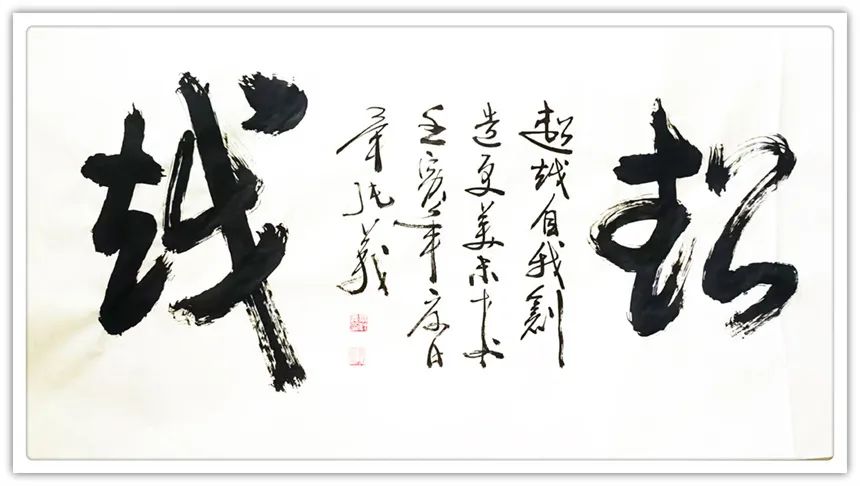 超越
超越自我創
造更美未来
壬寅年夏日
章
義